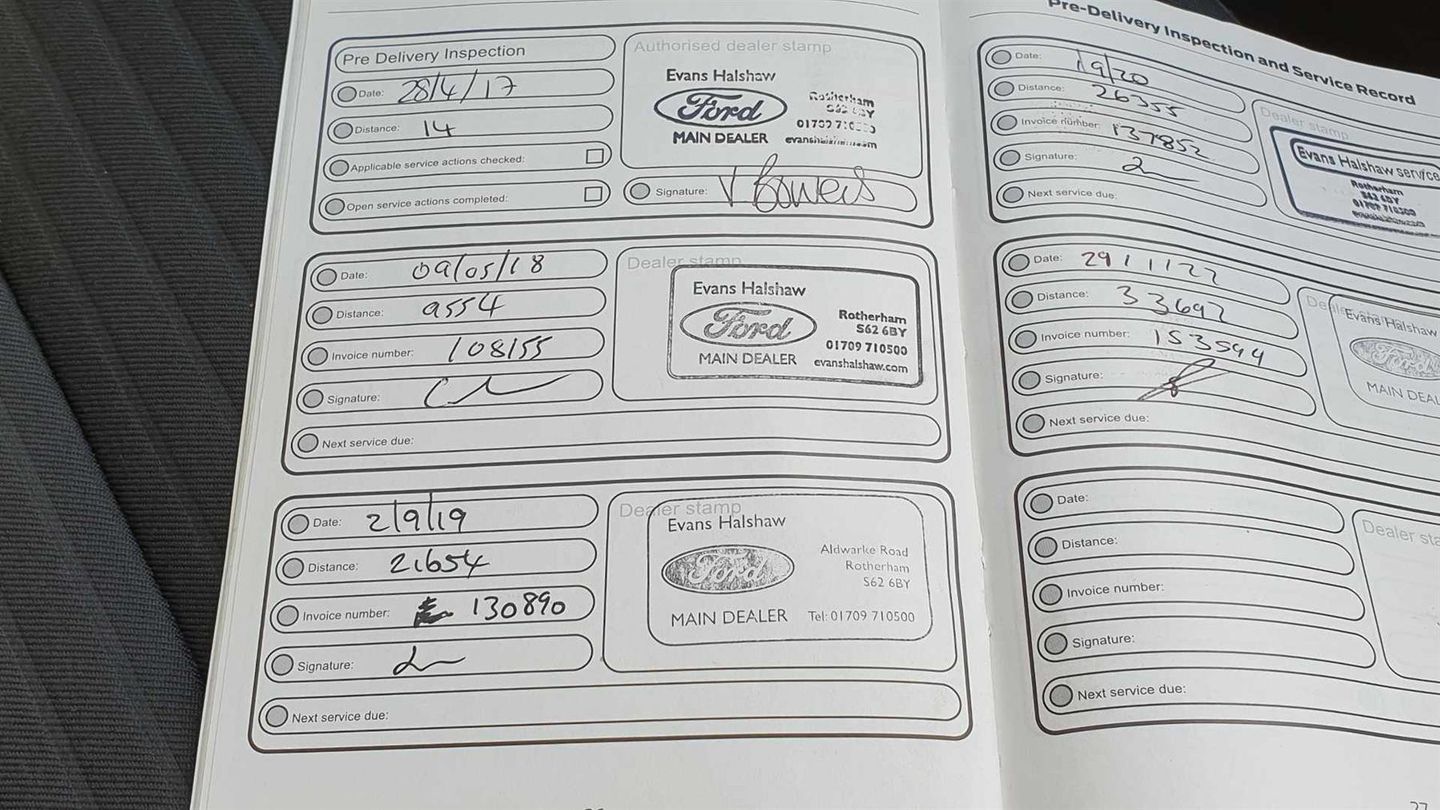 Pre Delivery Inspection
Date: 28/4/17
Distance: 14
Applicable service actions checked:
Open service actions completed:
Authorised dealer stamp
Evans Halshaw
Ford
MAIN DEALER
Rotherham
S62 6BY
evanshalshaw.com
Signature:
Date: 09/05/18
Distance: 9554
Invoice number: 108155
Signature:
Next service due:
Dealer stamp
Evans Halshaw
Ford
MAIN DEALER
Rotherham
S62 6BY
01709 710500
evanshalshaw.com
Date: 2/9/19
Distance: 21654
Invoice number: 130890
Signature:
Next service due:
Dealer stamp
Evans Halshaw
Ford
MAIN DEALER
Aldwarke Road
Rotherham
S62 6BY
Tel: 01709 710500
Pre-Delivery Inspection and Service Record
Date: 19/20
Distance: 26355
Invoice number: 137852
Signature:
Next service due:
Dealer stamp
Evans Halshaw service
Rotherham
S62 6BY
01709 710500
Date: 29/11/22
Distance: 33692
Invoice number: 153594
Signature:
Next service due:
Evans Halshaw
Ford
MAIN DEAL
Date:
Distance:
Invoice number:
Signature:
Next service due:
Dealer sta
27